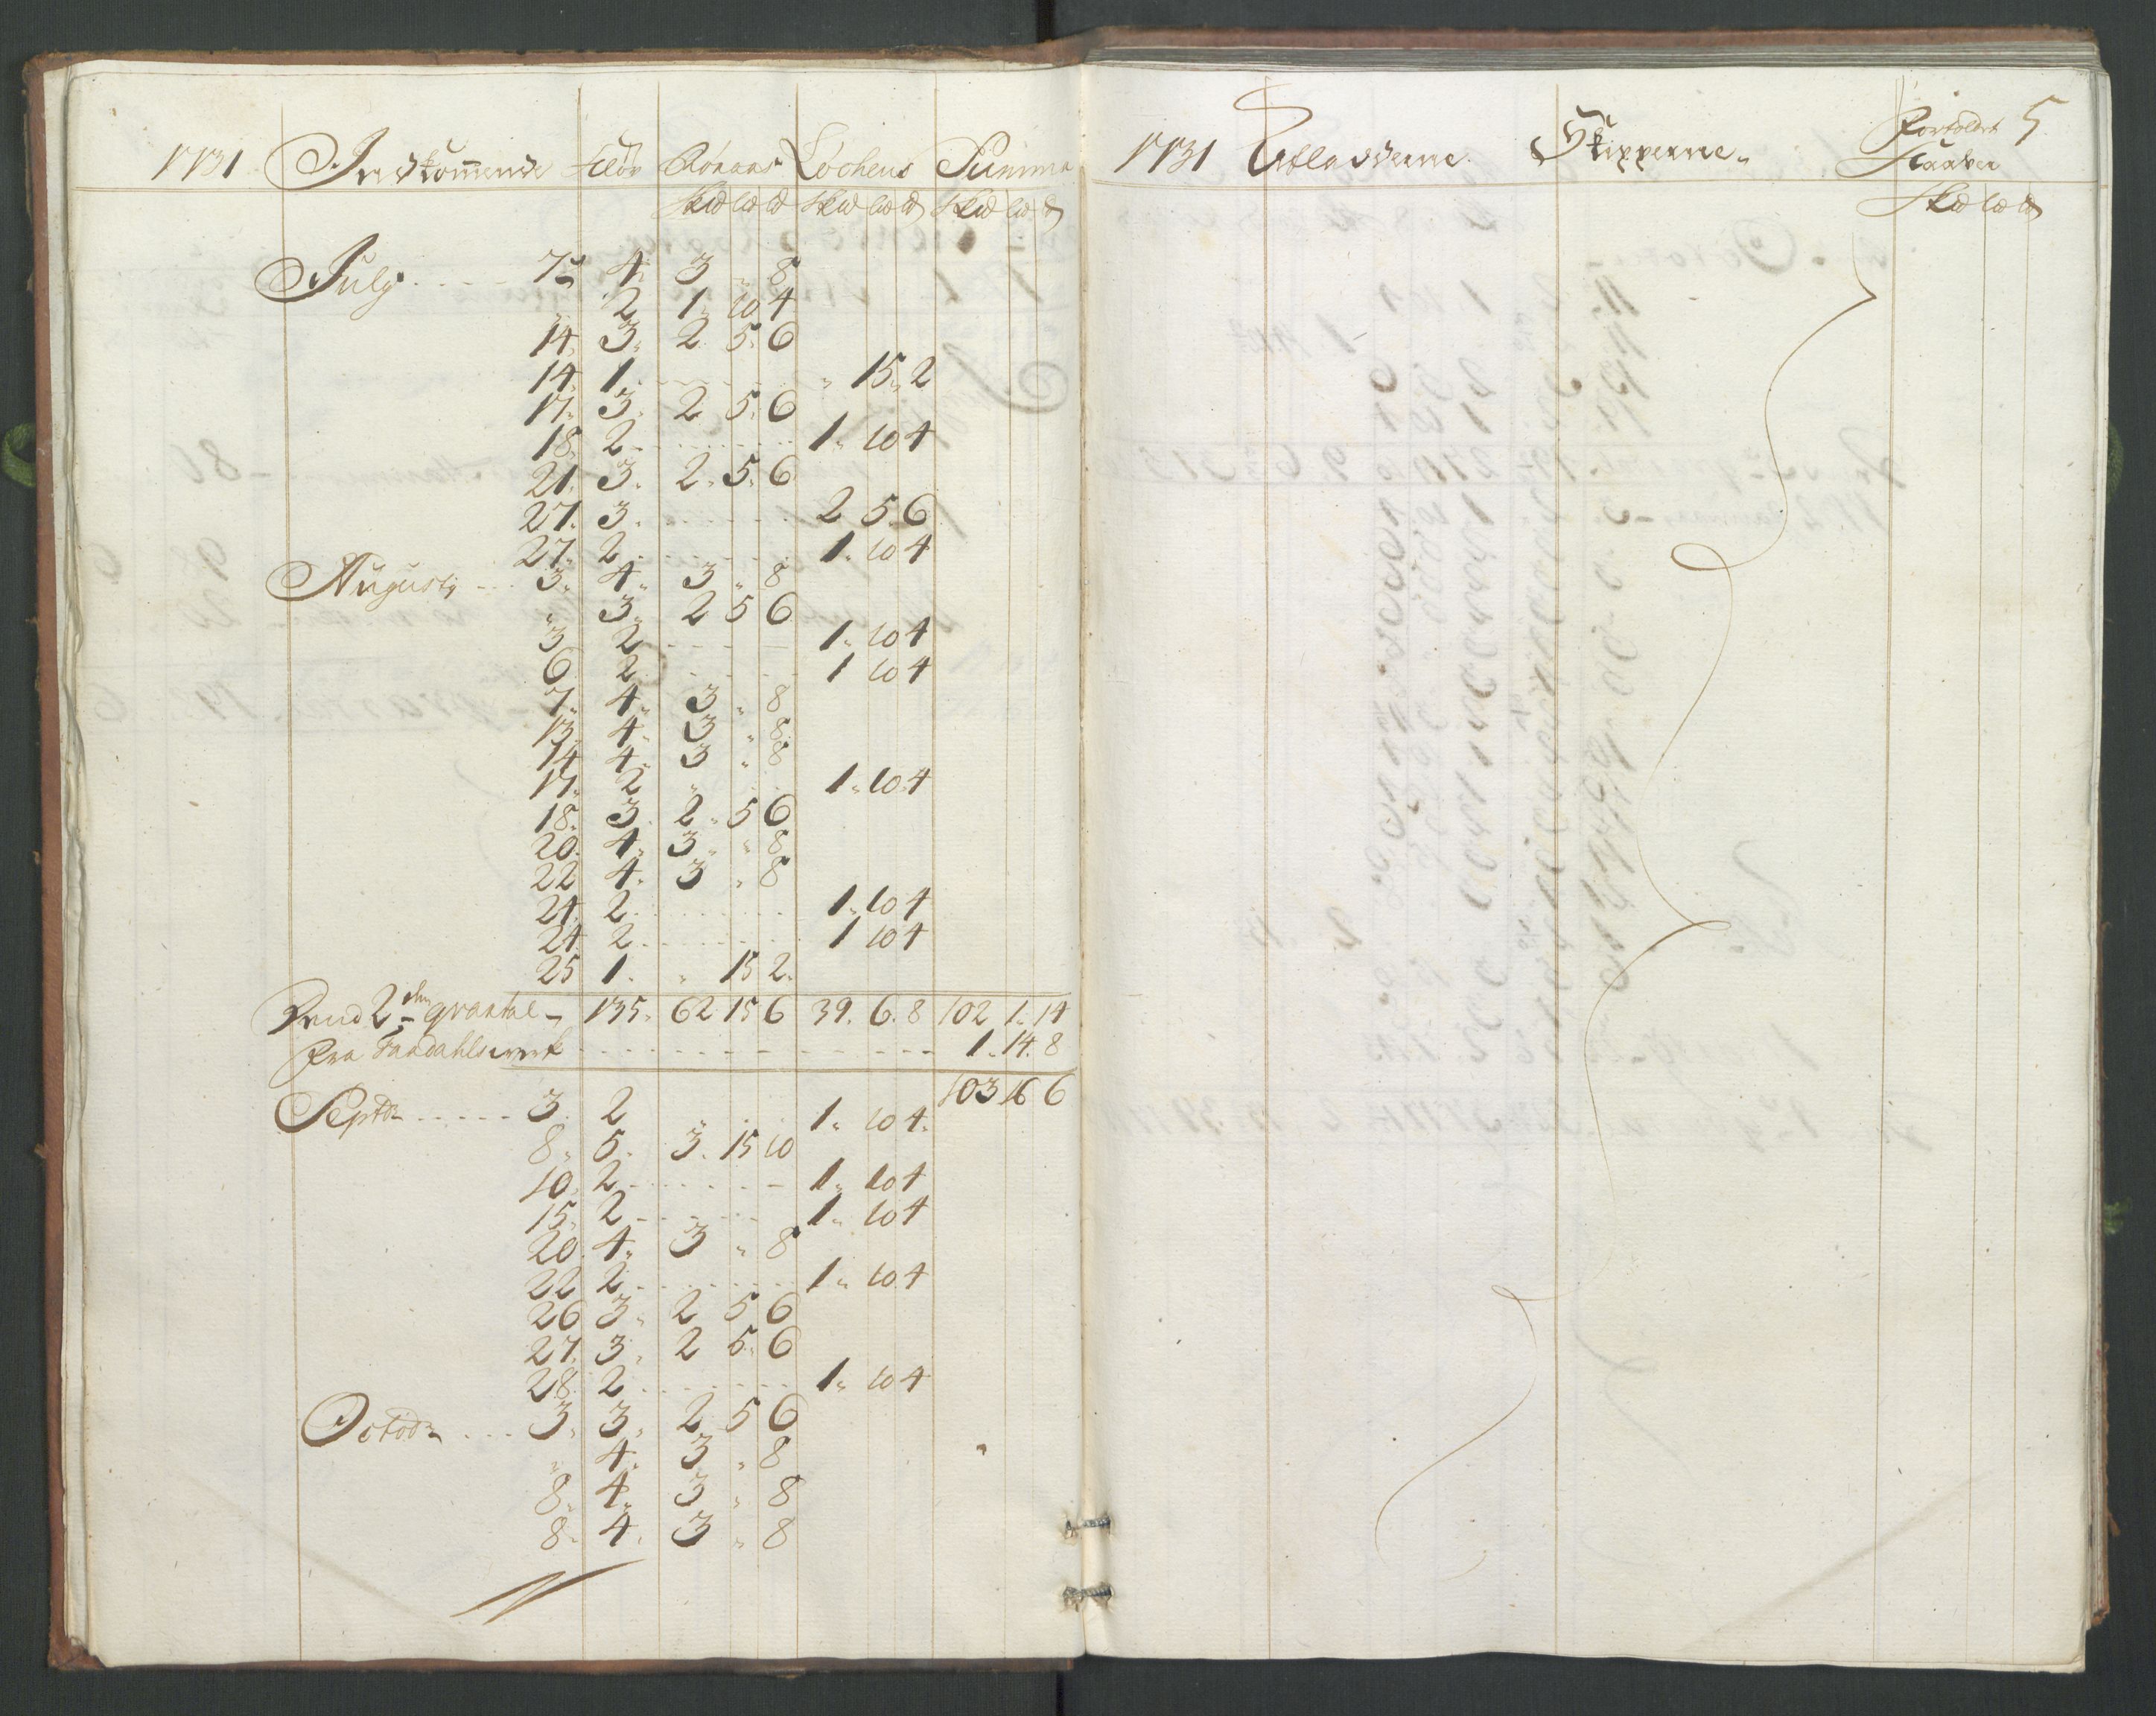 1731 Indkommende Kløv Røraas Løchens Summa
Skd Ld d Skd Ld d Skd Ld d
July . . . . 7. 4. 3 " 8
" 2 1. 10 4
14. 3. 2. 5. 6
14. 1. . . . . " 15. 2
17. 3. 2. 5. 6
18. 2. . . . . 1. 10 4
21. 3. 2. 5. 6
27. 3. . . . . 2 5 6
27. 2. . . . . 1. 10 4
Augusti . . . 3. 4. 3 " 8
" 3. 2 5 6
3 2 . . . . 1. 10 4
6. 2 . . . . 1 10 4
7. 4. 3 " 8
13. 4. 3 " 8
14 4. 3 " 8
17. 2 " . . 1. 10 4
18. 3. 2. 5 6
20. 4. 3. " 8
22 4. 3 " 8
24. 2. . . . . 1. 10 4
24. 2. . . . . 1 10 4
25 1. " 15 2.
2den qvartal - 135. 62 15 6 39. 6. 8 102 1. 14
fra . . . . 1. 14. 8
103 16 6
Septbr . . . . . 3. 2 " . . 1. 10 4.
8. 5. 3. 15 10
10. 2. . . . . 1. 10 4
15. 2. . . . . 1. 10 4
20. 4. 3 " 8
22 2. . . . . 1. 10 4
26 3. 2 5 6
27. 3. 2 5. 6
28. 2. . . . . 1. 10 4
Octobr . . . 3. 3. 2 5 6
" 4. 3 " 8
8. 4. 3 " 8
8. 4. 3 " 8
1731 Skipperne. 5
Skd Ld d